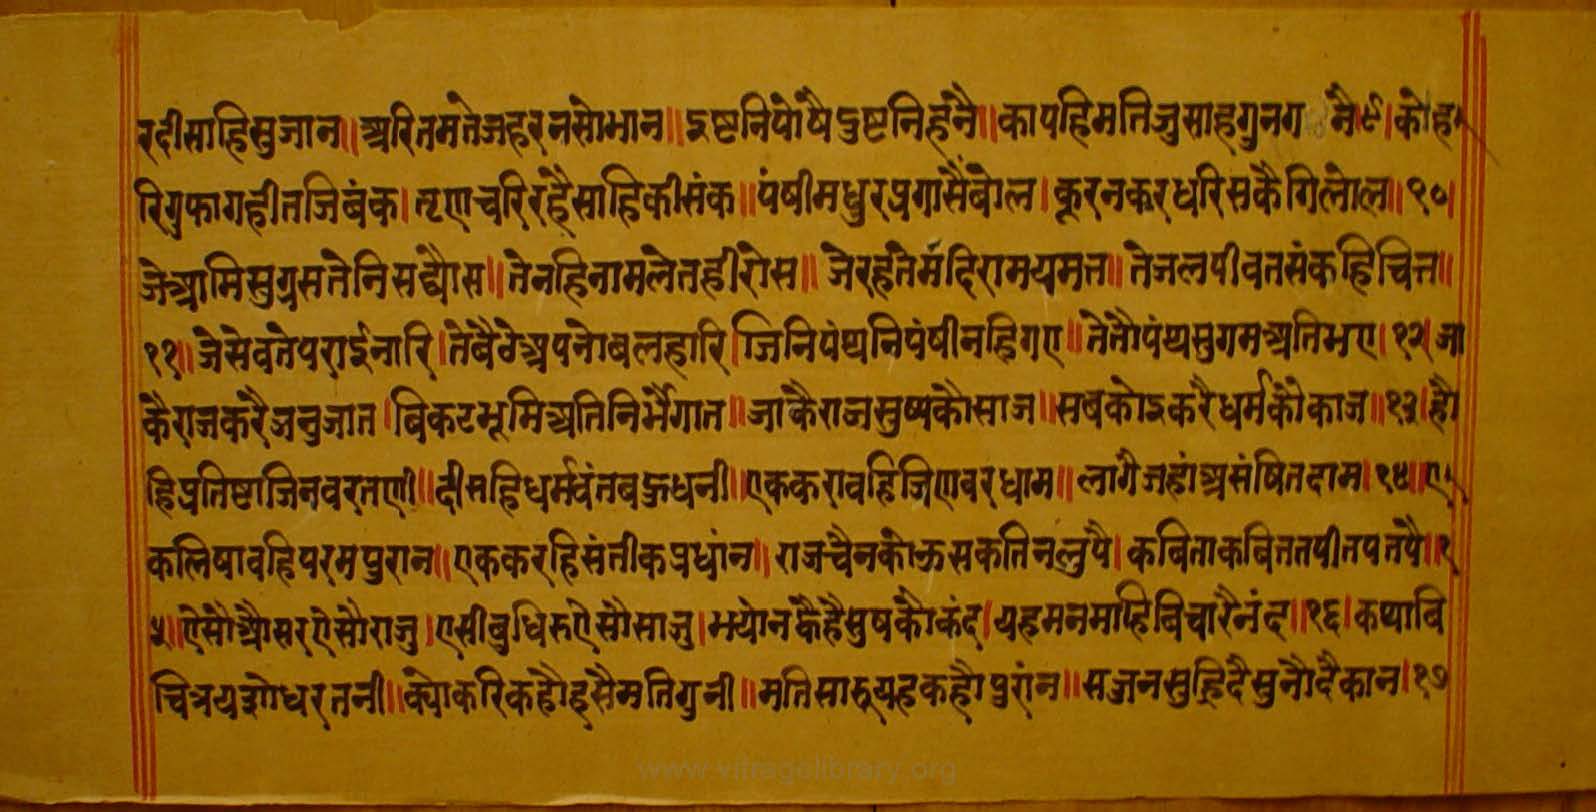 रदीसाहिसुजान॥ अरितमतेजहरनसोभान॥ इष्टनिपोषैदुष्टनिहनै॥ कापहिमतिजुसाहगुनग नै९। कोह
रिगुफागहीतजिबंक। तृणचरिरहैसाहिकीसंक॥ पंषीमधुरप्रगासैंबोल। कूरनकरधरिसकैगिलोल॥१०।
जेआमिसुग्रसतेनिसद्यौस॥ तेनहिनामलेतहीरोस॥ जेरहतेमंदिरामयमत्त॥ तेजलपीवतसंकहिचित्त॥
११॥ जेसेवतेपराईनारि। तेबैठेअपनोबलहारि। जिनिपंथनिपंषीनहिगए॥ तेतौपंथसुगमअतिभए।१२। जा
कैराजकरैजनुजात। बिकटभूमिअतिनिर्भैगात॥ जाकैराजसुष्यकौसाज॥ सबकोइकरैधर्मकौकाज॥१३। हौ
हिप्रतिष्टाजिनवरतणी॥ दीसहिधर्मवंतबऊधनी॥ एककरावहिजिणवरधाम॥ लागैजहांअसंषितदाम।१४॥ ए
कलिषावहिपरमपुरान॥ एककरहिसंतीकप्रधांन॥ राजचैनकोऊसकतिनलुपै। कबिताकबितततपीतपतपै॥१
५॥ ऐसौऔसरऐसौराजु। एसीबुधिरुऐसौसाजु। भयोनकैहैसुषकौकंद। यहमनमाहिबिचारैनंद॥१६। कथाबि
चित्रयशोधरतनी॥ क्योकरिकहौइसैमतिगुनी॥ मतिसारूयहकहौपुरांन॥ सज्जनसुहिदैसुनौदैकान।१७
www.vitragelibrary.org